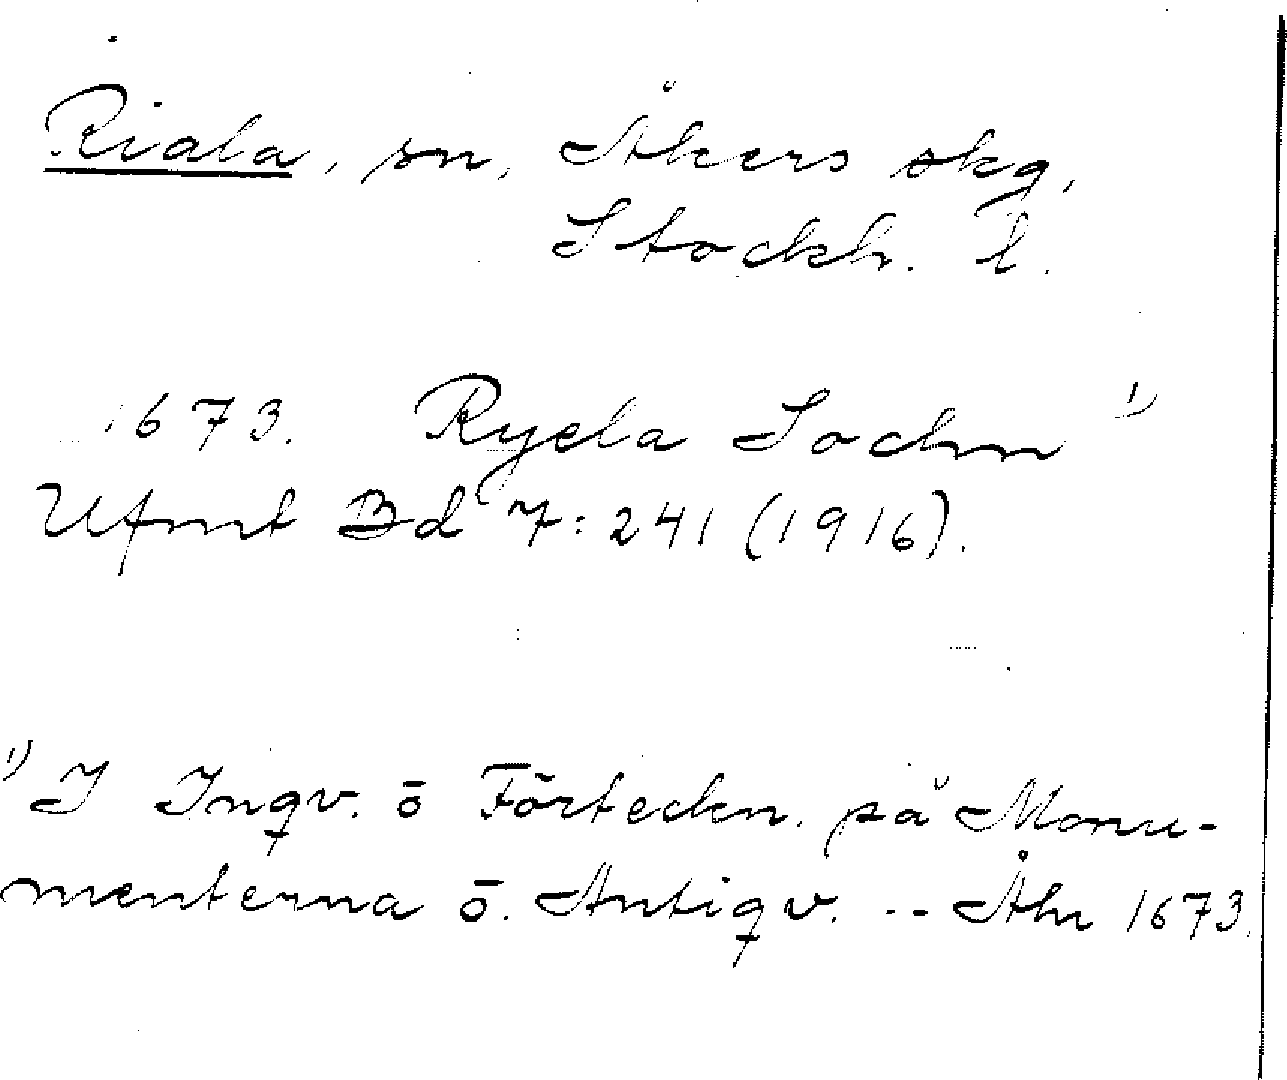 Riala, sn, Åkers skg,
Stockh. l.
1673. Ryela Sochn 1)
Ufmt Bd 7:241 (1916).
1) I Inqv. ō Förteckn. på Monu-
menterna ō. Antiqv. -- Åhr 1673.